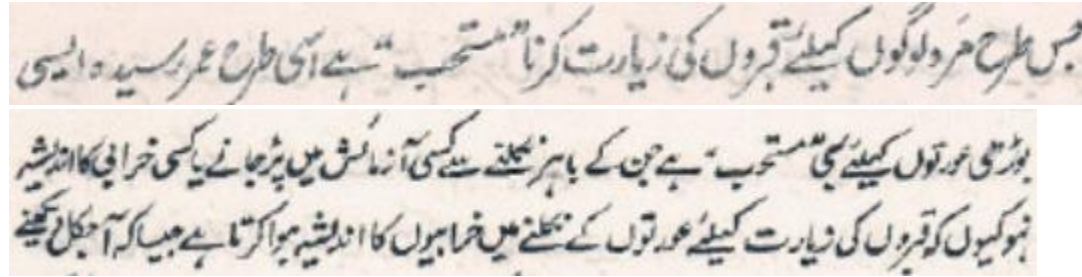 جس طرح مرد لوگوں کیلئے قبروں کی زیارت کرنا "مستحب" ہے اسی طرح عمر رسیدہ ایسی
بوڑھی عورتوں کیلئے بھی "مستحب" ہے جن کے باہر نکلنے سے کسی آزمائش میں پڑجانے یا کسی خرابی کا اندیشہ
نہو کیوں کہ قبروں کی زیارت کیلئے عورتوں کے نکلنے میں خرابیوں کا اندیشہ ہوا کرتا ہے جیسا کہ آجکل دیکھنے